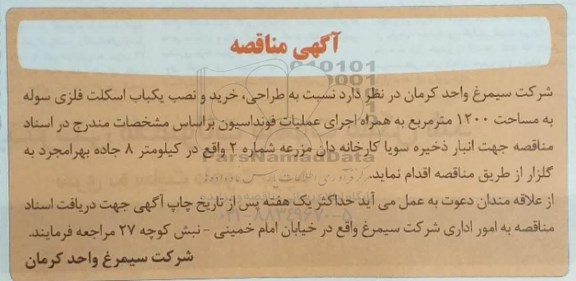 آگهی مناقصه
شرکت سیمرغ واحد کرمان در نظر دارد نسبت به طراحی، خرید و نصب یکباب اسکلت فلزی سوله
به مساحت ۱۲۰۰ مترمربع به همراه اجرای عملیات فونداسیون براساس مشخصات مندرج در اسناد
مناقصه جهت انبار ذخیره سویا کارخانه دان مزرعه شماره ۲ واقع در کیلومتر ۸ جاده بهرامجرد به
گلزار از طریق مناقصه اقدام نماید.
از علاقه مندان دعوت به عمل می آید حداکثر یک هفته پس از تاریخ چاپ آگهی جهت دریافت اسناد
مناقصه به امور اداری شرکت سیمرغ واقع در خیابان امام خمینی - نبش کوچه ۲۷ مراجعه فرمایند.
شرکت سیمرغ واحد کرمان
ParsNamadData